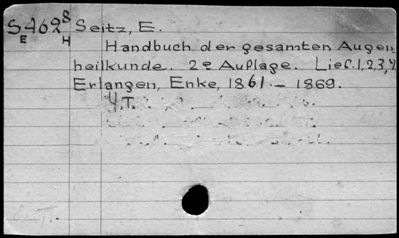 S462⁸ Seitz, E.
E H
Handbuch der gesamten Augen
heilkunde. 2e Auflage. Lief. 1,2,3,4
Erlangen, Enke, 1861 - 1869.
4 T.